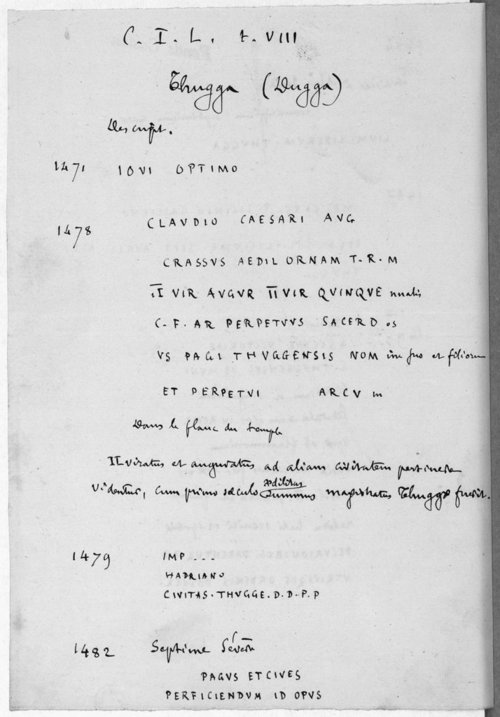 C. I. L. t. VIII
Thugga (Dugga)
Descript.
1471 IOVI OPTIMO
1478 CLAVDIO CAESARI AVG
CRASSVS AEDIL ORNAM T. R. M
II VIR AVGVR II VIR QVINQVE nnalis
C. F. AR PERPETVVS SACERD os
VS PAGI THVGGENSIS NOM ine suo et filiorum
ET PERPETVI ARCV m
Dans le flanc du temple
II viratus et auguratus ad aliam civitatem pertinere
videntur, cum primo saeculo aedilitas summus magistratus Thuggae fuerit.
1479 IMP...
HADRIANO
CIVITAS. THVGGE. D. D. P. P
1482 Septime Sévère
PAGVS ET CIVES
PERFICIENDVM ID OPVS